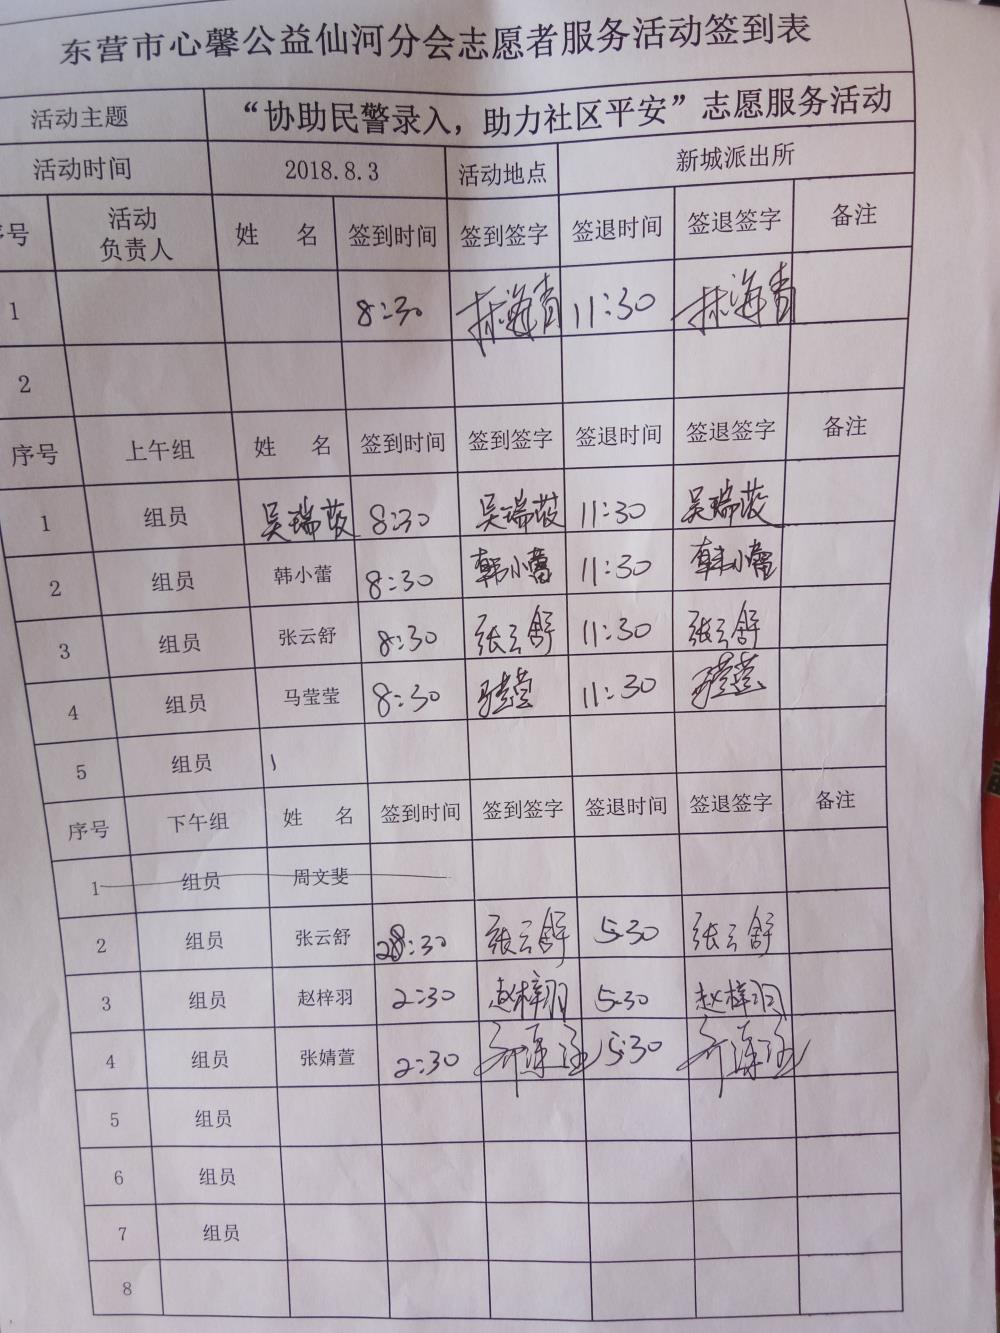 东营市心馨公益仙河分会志愿者服务活动签到表
活动主题 “协助民警录入，助力社区平安”志愿服务活动
活动时间 2018.8.3 活动地点 新城派出所
序号 活动负责人 姓 名 签到时间 签到签字 签退时间 签退签字 备注
1 8:30 林海青 11:30 林海青
2
序号 上午组 姓 名 签到时间 签到签字 签退时间 签退签字 备注
1 组员 吴瑞 8:30 吴瑞 11:30 吴瑞
2 组员 韩小蕾 8:30 韩小蕾 11:30 韩小蕾
3 组员 张云舒 8:30 张云舒 11:30 张云舒
4 组员 马莹莹 8:30 马莹莹 11:30 马莹莹
5 组员
序号 下午组 姓 名 签到时间 签到签字 签退时间 签退签字 备注
1 组员 周文斐
2 组员 张云舒 2:30 张云舒 5:30 张云舒
3 组员 赵梓羽 2:30 赵梓羽 5:30 赵梓羽
4 组员 张婧萱 2:30 5:30
5 组员
6 组员
7 组员
8